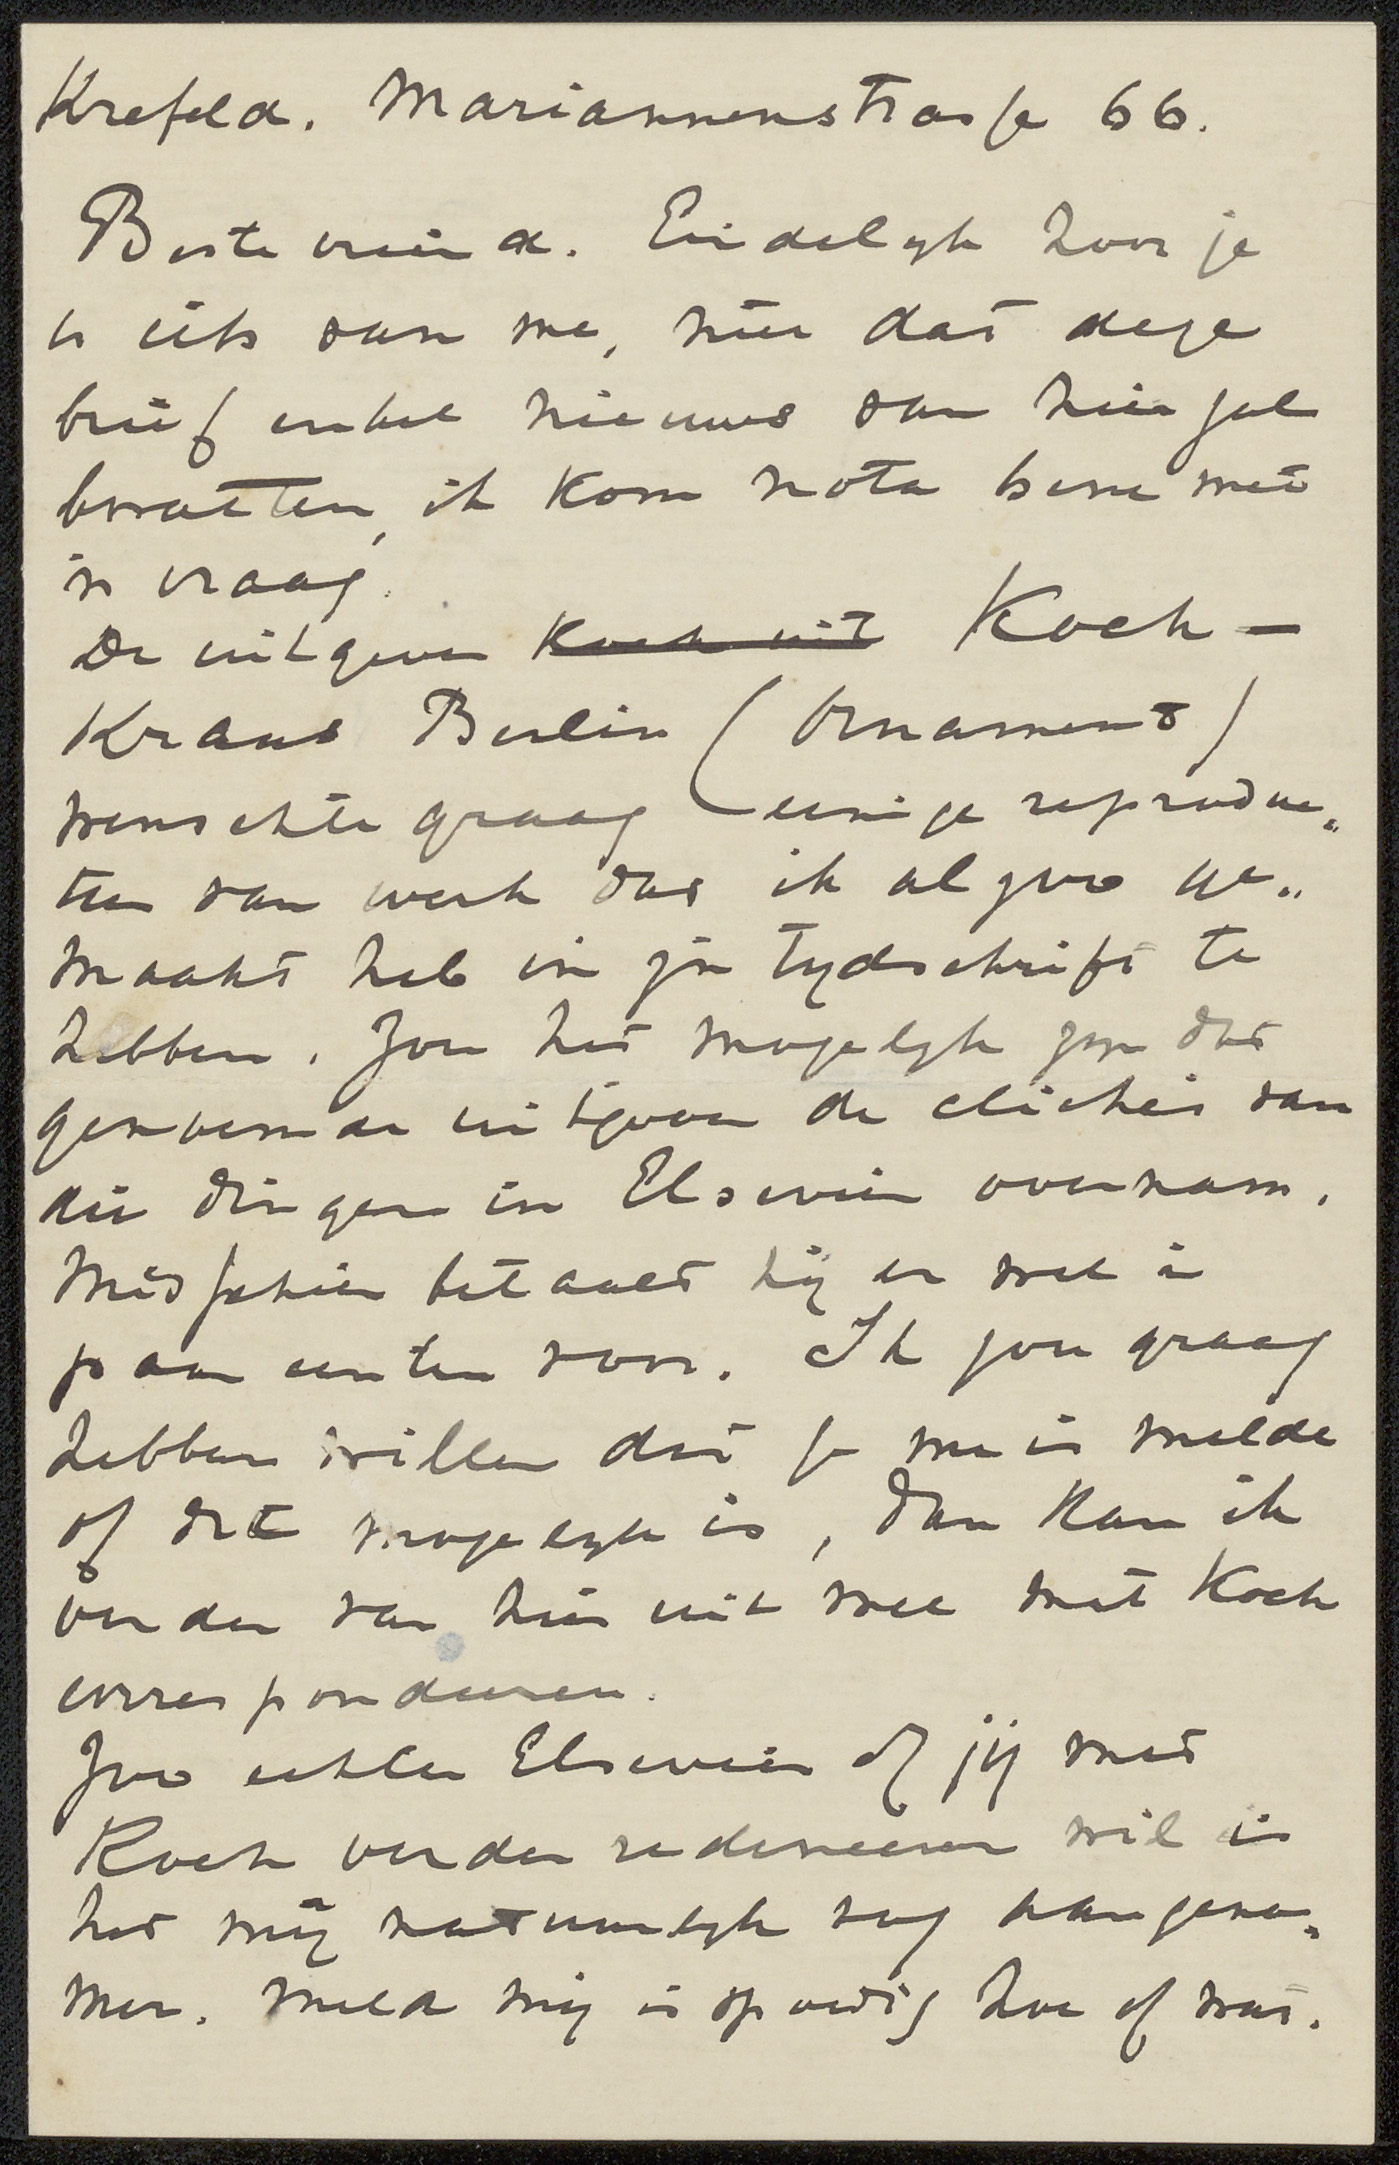 Krefeld. Mariannenstrasse 66.
Beste vriend. Eindelyk hoor je
is iets van me, niet dat deze
brief enkel nieuws van hier zal
bevatten, ik kom nota bene met
'n vraag.
De uitgever Koch uit Koch-
Kraus Berlin (Ornament)
wenschte graag eenige reproduc„
ties van werk dat ik al zoo ge„
maakt heb in z'n tydschrift te
hebben. Zou het mogelyk zyn dat
genoemde uitgever de cliché's van
die dingen in Elsevier overnam.
Misschien betaald hij er wel 'n
paar centen voor. Ik zou graag
hebben willen dat je me is melde
of dit mogelyk is, dan kan ik
verder van hier uit wel met Koch
correspondeeren.
Zoo echter Elsevier of jij met
Koch verder redeneeren wil is
het mij natuurlyk nog aangena„
mer. Meld mij is spoedig hoe of wat.